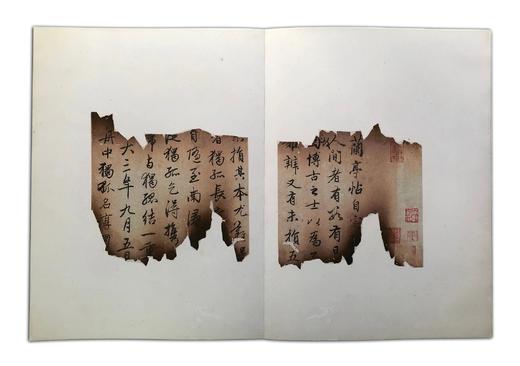 蘭亭帖自
人間者有數有日
博古之士以為
難辨又有未損五
損其本尤難
者獨孤長
自隨至南潯
從獨孤乞得攜
與獨孤結一重
大三年九月五日
舟中獨孤名淳